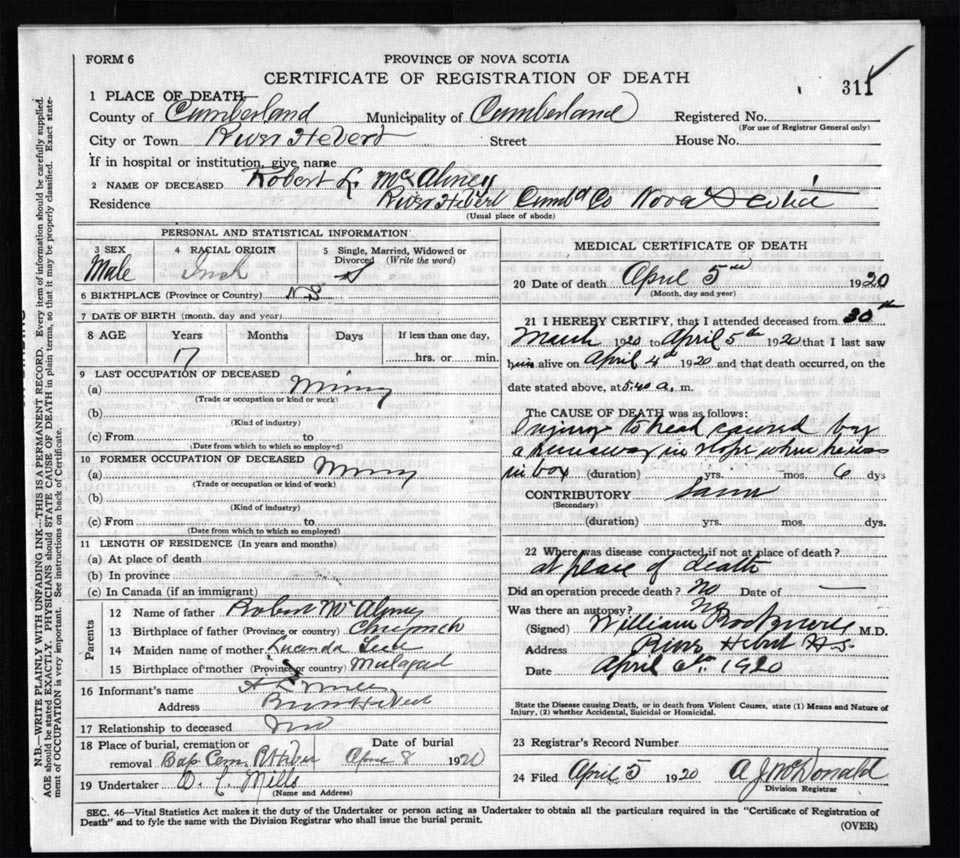 FORM 6
PROVINCE OF NOVA SCOTIA
CERTIFICATE OF REGISTRATION OF DEATH
311
1 PLACE OF DEATH—
County of Cumberland Municipality of Cumberland Registered No.
(For use of Registrar General only)
City or Town River Hebert Street House No.
If in hospital or institution, give name
2 NAME OF DECEASED Robert L. McAloney
Residence River Hebert Cumbd Co Nova Scotia
(Usual place of abode)
PERSONAL AND STATISTICAL INFORMATION
3 SEX 4 RACIAL ORIGIN 5 Single, Married, Widowed or Divorced (Write the word)
Male Irish S
6 BIRTHPLACE (Province or Country) N S
7 DATE OF BIRTH (month, day and year)
8 AGE Years Months Days If less than one day,
17 hrs. or min.
9 LAST OCCUPATION OF DECEASED
(a) Mining
(Trade or occupation or kind or work)
(b)
(Kind of industry)
(c) From to
(Date from which to which employed)
10 FORMER OCCUPATION OF DECEASED
(a) Mining
(Trade or occupation or kind of work)
(b)
(Kind of industry)
(c) From to
(Date from which to which so employed)
11 LENGTH OF RESIDENCE (In years and months)
(a) At place of death
(b) In province
(c) In Canada (if an immigrant)
Parents
12 Name of father Robert McAloney
13 Birthplace of father (Province or country)
14 Maiden name of mother Lucinda
15 Birthplace of mother (Province or country)
16 Informant's name
Address River Hebert
17 Relationship to deceased
18 Place of burial, cremation or removal Date of burial
Bap. Cem. R Hebert April 8 1920
19 Undertaker D. L. Mills
(Name and Address)
MEDICAL CERTIFICATE OF DEATH
20 Date of death April 5th 1920
(Month, day and year)
21 I HEREBY CERTIFY, that I attended deceased from 30th
March 1920 to April 5th 1920 that I last saw
him alive on April 4th 1920 and that death occurred, on the
date stated above, at 5:40 a. m.
The CAUSE OF DEATH was as follows:
Injury to head caused by
a runaway in slope when he was
in box (duration) yrs. mos. 6 dys
CONTRIBUTORY Same
(Secondary)
(duration) yrs. mos. dys.
22 Where was disease contracted if not at place of death?
at place of death
Did an operation precede death? No Date of —
Was there an autopsy? No
(Signed) William Rockwell M.D.
Address River Hebert N.S.
Date April 6th 1920
State the Disease causing Death, or in death from Violent Causes, state (1) Means and Nature of Injury, (2) whether Accidental, Suicidal or Homicidal.
23 Registrar's Record Number
24 Filed April 5 1920 A J McDonald
Division Registrar
SEC. 46—Vital Statistics Act makes it the duty of the Undertaker or person acting as Undertaker to obtain all the particulars required in the "Certificate of Registration of
Death" and to fyle the same with the Division Registrar who shall issue the burial permit.
(OVER)
N.B.—WRITE PLAINLY WITH UNFADING INK—THIS IS A PERMANENT RECORD. Every item of information should be carefully supplied.
AGE should be stated EXACTLY. PHYSICIANS should STATE CAUSE OF DEATH in plain terms, so that it may be properly classified. Exact state-
ment of OCCUPATION is very important. See instructions on back of Certificate.